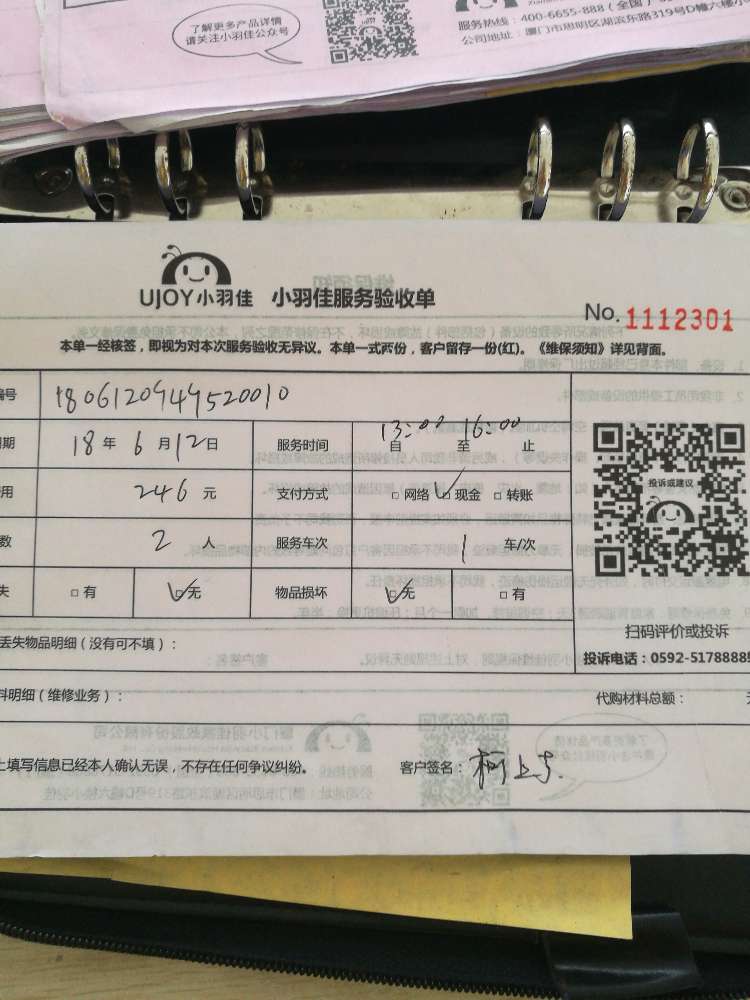 了解更多产品详情
请关注小羽佳公众号
服务热线：400-6655-888（全国）
公司地址：厦门市思明区湖滨东路319号D幢六楼小
UJOY小羽佳 小羽佳服务验收单
No. 1112301
本单一经核签，即视为对本次服务验收无异议。本单一式两份，客户留存一份(红)。《维保须知》详见背面。
编号 1806120949520010
期 18 年 6 月 12 日 服务时间 自 13:00 至 16:00 止
用 246 元 支付方式 □ 网络 ☑ 现金 □ 转账
数 2 人 服务车次 1 车/次
失 □ 有 ☑ 无 物品损坏 ☑ 无 □ 有
投诉或建议
扫码评价或投诉
投诉电话：0592-5178888
丢失物品明细（没有可不填）：
料明细（维修业务）： 代购材料总额：
上填写信息已经本人确认无误，不存在任何争议纠纷。 客户签名：